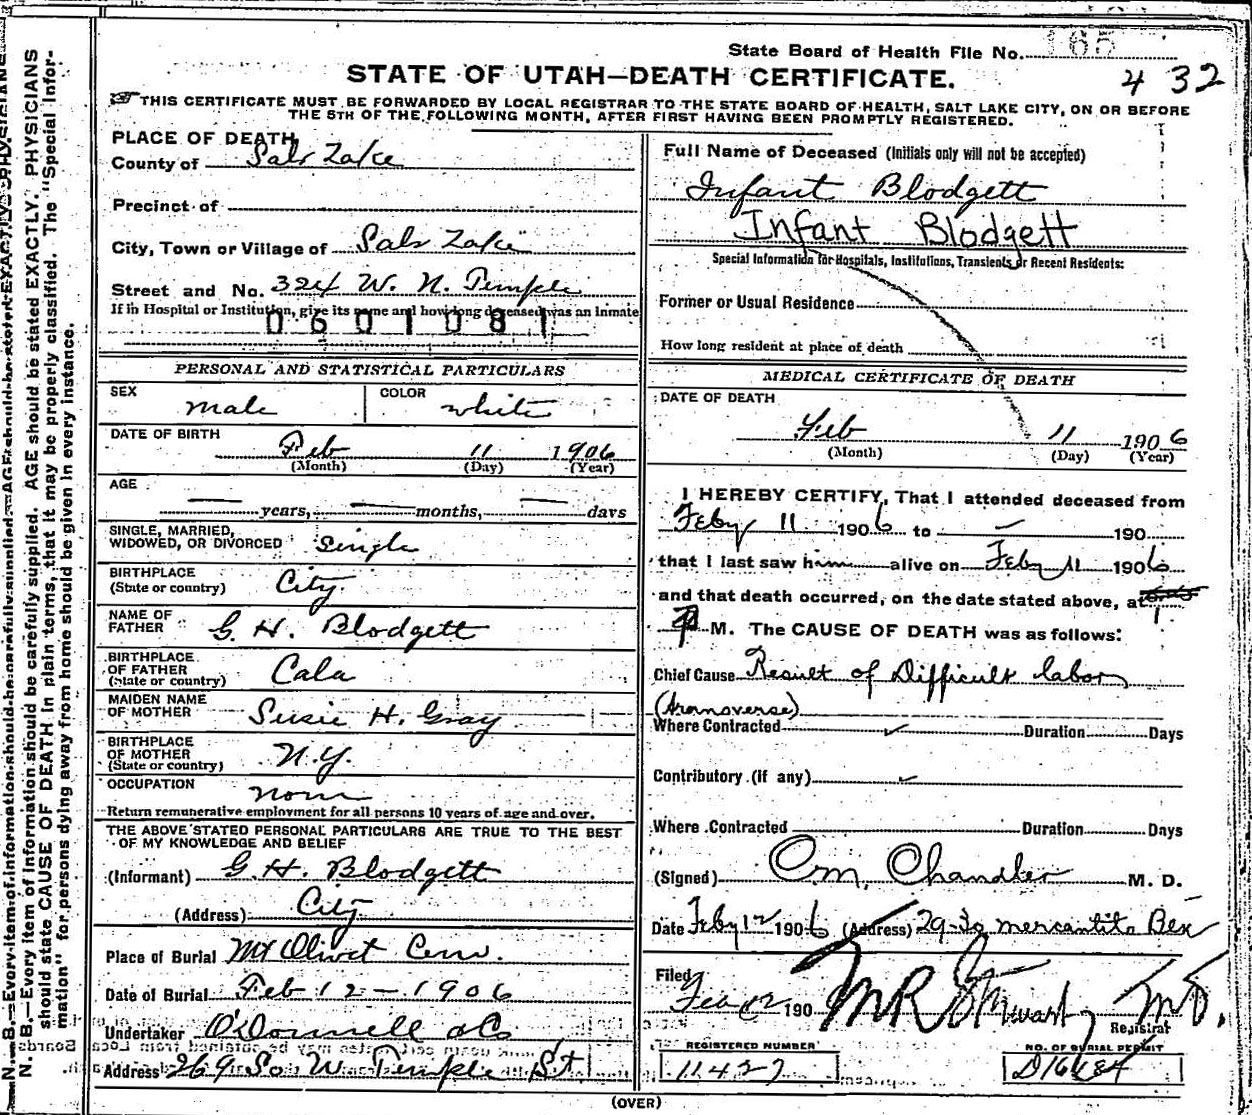 State Board of Health File No. 165
STATE OF UTAH—DEATH CERTIFICATE.
432
THIS CERTIFICATE MUST BE FORWARDED BY LOCAL REGISTRAR TO THE STATE BOARD OF HEALTH, SALT LAKE CITY, ON OR BEFORE
THE 5TH OF THE FOLLOWING MONTH, AFTER FIRST HAVING BEEN PROMPTLY REGISTERED.
PLACE OF DEATH
County of Salt Lake
Precinct of
City, Town or Village of Salt Lake
Street and No. 324 W. N. Temple
If in Hospital or Institution, give its name and how long deceased was an inmate
0601081
PERSONAL AND STATISTICAL PARTICULARS
SEX male COLOR white
DATE OF BIRTH Feb 11 1906
(Month) (Day) (Year)
AGE
— years, — months, — days
SINGLE, MARRIED,
WIDOWED, OR DIVORCED Single
BIRTHPLACE
(State or country) City
NAME OF
FATHER G. H. Blodgett
BIRTHPLACE
OF FATHER
(State or country) Cala
MAIDEN NAME
OF MOTHER Susie H. Gray
BIRTHPLACE
OF MOTHER
(State or country) N.Y.
OCCUPATION none
Return remunerative employment for all persons 10 years of age and over.
THE ABOVE STATED PERSONAL PARTICULARS ARE TRUE TO THE BEST
OF MY KNOWLEDGE AND BELIEF
(Informant) G. H. Blodgett
(Address) City
Place of Burial Mt Olivet Cem.
Date of Burial Feb 12 - 1906
Undertaker O'Donnell & Co
Address 269 So W. Temple St
Full Name of Deceased (Initials only will not be accepted)
Infant Blodgett
Infant Blodgett
Special Information for Hospitals, Institutions, Transients or Recent Residents:
Former or Usual Residence
How long resident at place of death
MEDICAL CERTIFICATE OF DEATH
DATE OF DEATH
Feb 11 1906
(Month) (Day) (Year)
I HEREBY CERTIFY, That I attended deceased from
Feby 11 1906 to — 190
that I last saw him alive on Feby 11 1906
and that death occurred, on the date stated above, at 1
P M. The CAUSE OF DEATH was as follows:
Chief Cause Result of Difficult labor
(transverse)
Where Contracted Duration Days
Contributory (if any)
Where Contracted Duration Days
(Signed) C.M. Chandler M. D.
Date Feby 12 1906 (Address) 29-30 mercantile
Filed Feb 12 190 M R Stewart MD.
Registrar
REGISTERED NUMBER
11427
NO. OF BURIAL PERMIT
(OVER)
N. B.—Every item of information should be carefully supplied. AGE should be stated EXACTLY. PHYSICIANS
should state CAUSE OF DEATH in plain terms, that it may be properly classified. The "Special Infor-
mation" for persons dying away from home should be given in every instance.